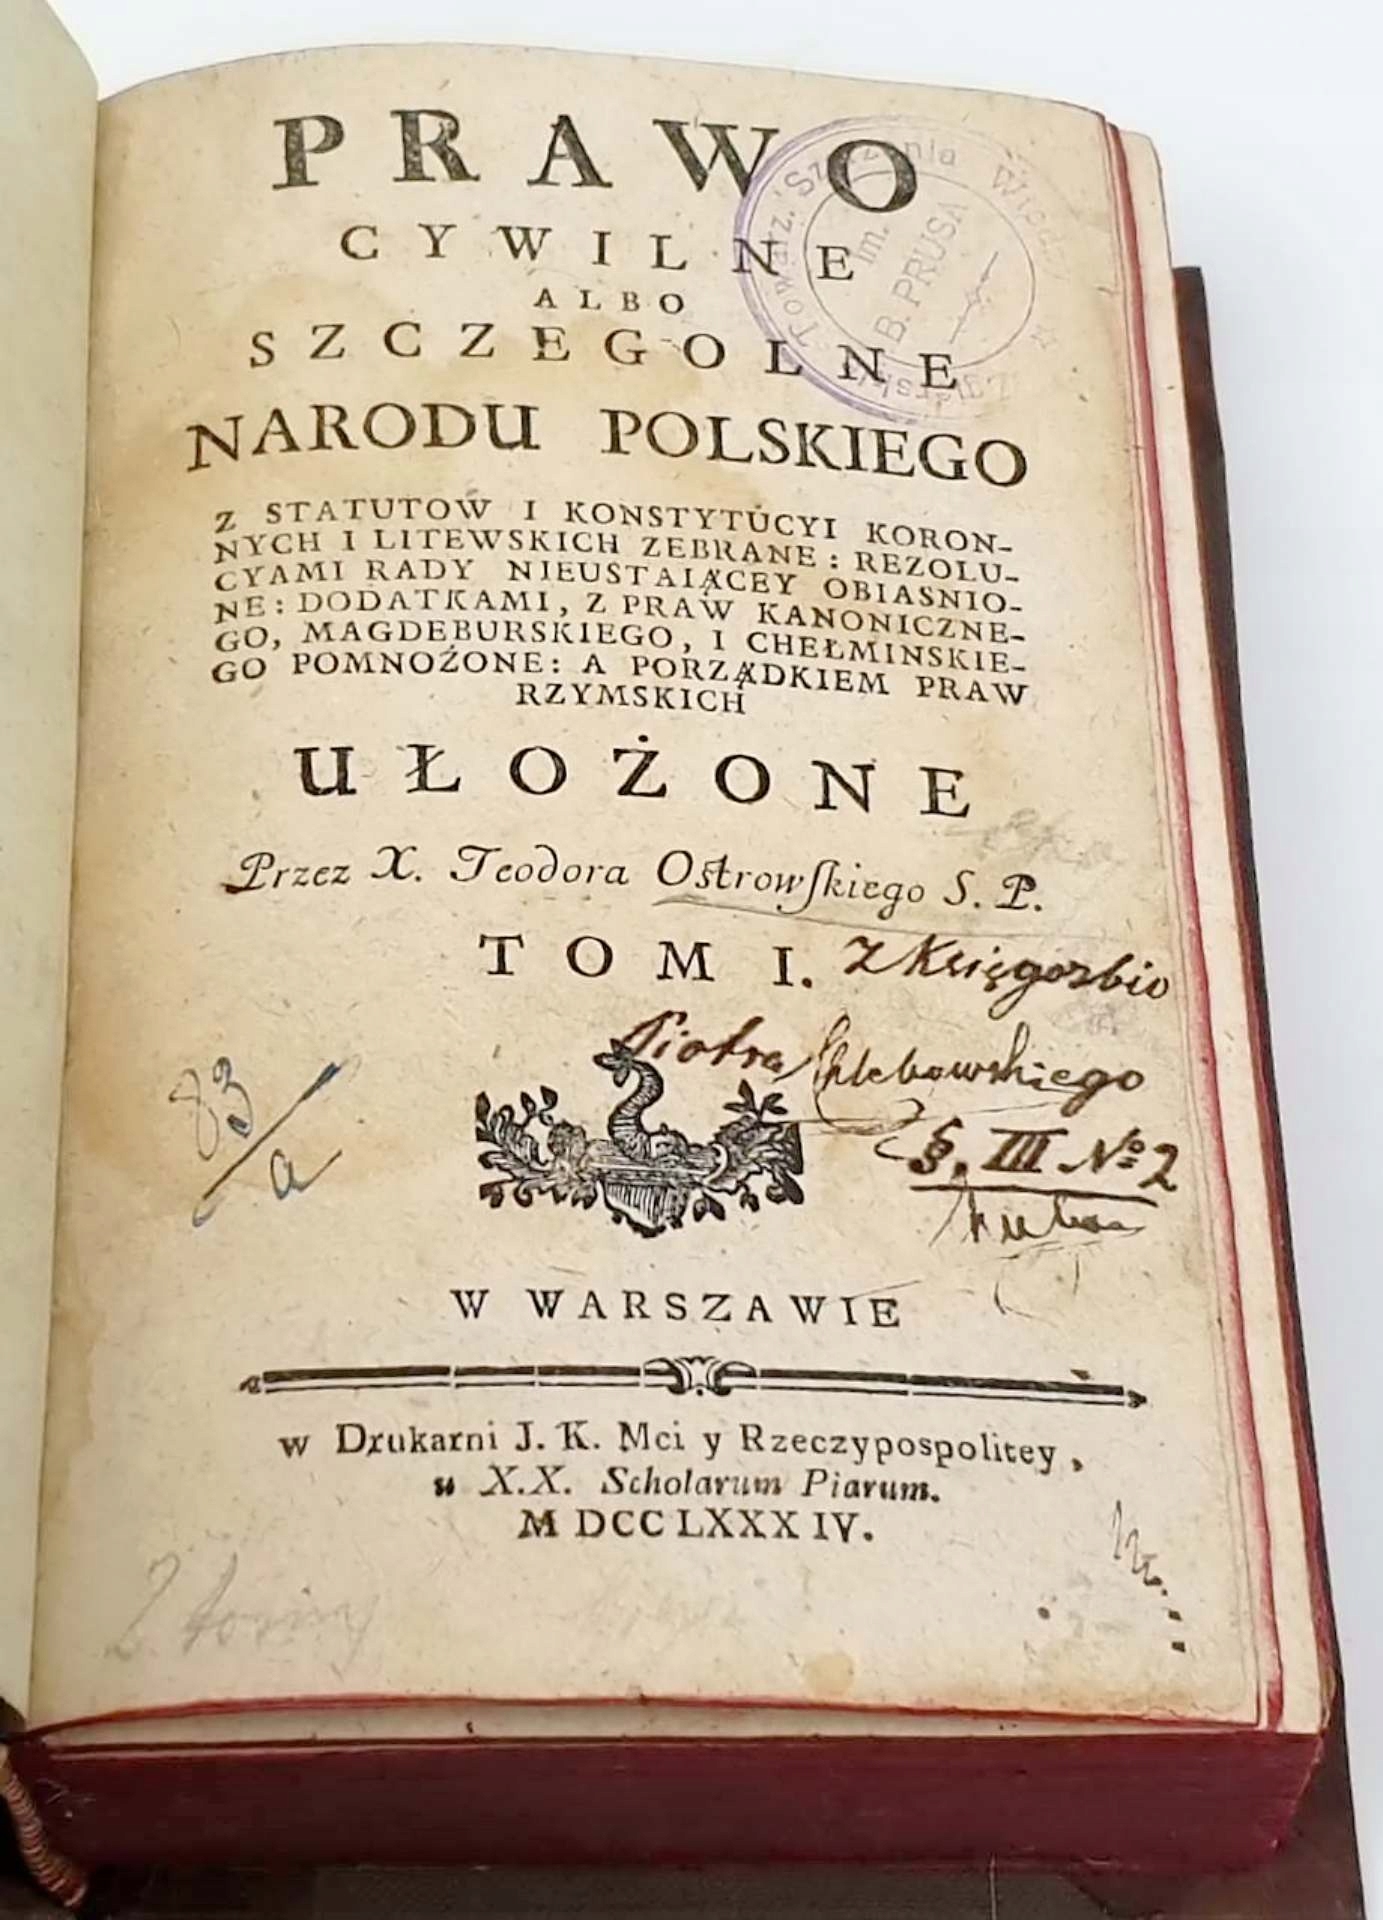 PRAWO
CYWILNE
ALBO
SZCZEGOLNE
NARODU POLSKIEGO
Z STATUTOW I KONSTYTUCYI KORON-
NYCH I LITEWSKICH ZEBRANE: REZOLU-
CYAMI RADY NIEUSTAIĄCEY OBIASNIO-
NE: DODATKAMI, Z PRAW KANONICZNE-
GO, MAGDEBURSKIEGO, I CHEŁMINSKIE-
GO POMNOŻONE: A PORZĄDKIEM PRAW
RZYMSKICH
UŁOŻONE
Przez X. Teodora Ostrowſkiego S. P.
TOM I.
z Księgozbio
Piotra Chlebowskiego
§. III No 2
83
a
W WARSZAWIE
w Drukarni J. K. Mci y Rzeczypospolitey,
u X.X. Scholarum Piarum.
M DCC LXXX IV.
Towarz. Szerzenia Wiedzy
im.
B. PRUSA